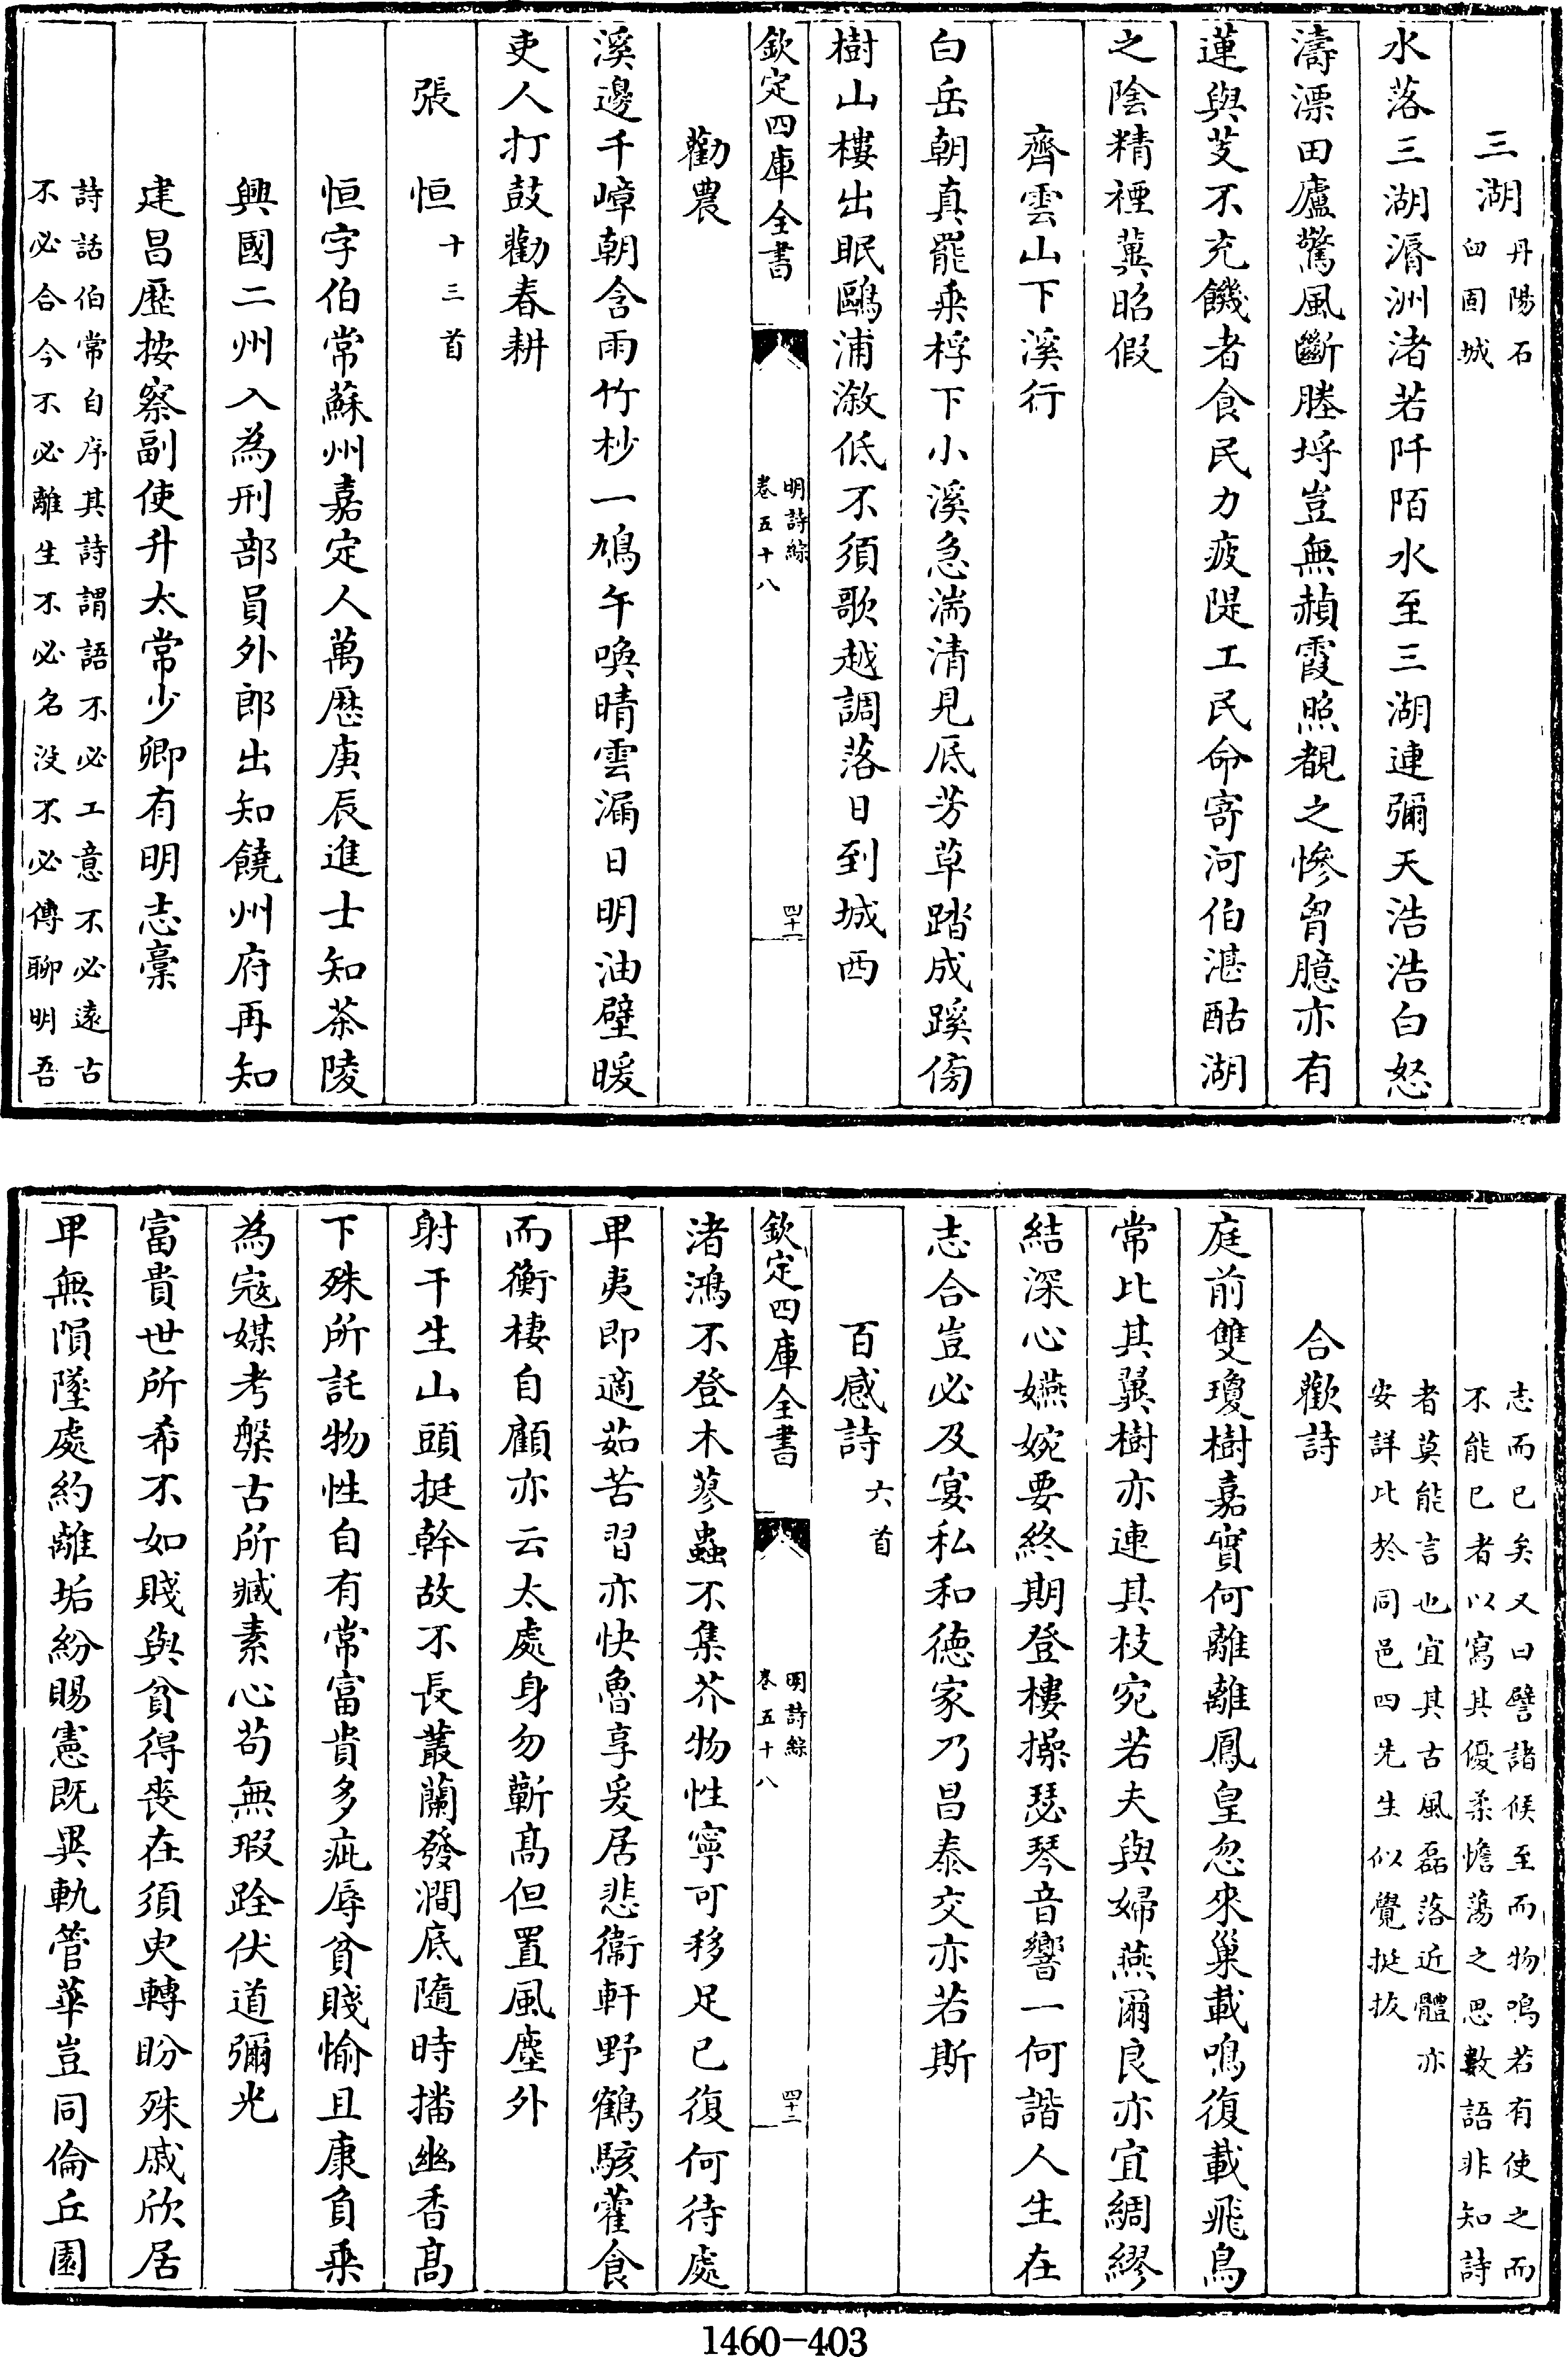 三湖丹陽石臼固城
水落三湖漘洲渚若阡陌水至三湖連彌天浩浩白怒
濤漂田廬驚風斷塍埓豈無赬霞照覩之慘胷臆亦有
蓮與芰不充饑者食民力疲隄工民命寄河伯湛酤湖
之陰精禋冀昭假
齊雲山下溪行
白岳朝真罷乗桴下小溪急湍清見底芳草踏成蹊傍
樹山樓出眠鷗浦溆低不須歌越調落日到城西
欽定四庫全書
明詩綜
卷五十八
四十一
勸農
溪邊千嶂朝含雨竹杪一鳩午喚晴雲漏日明油壁暖
吏人打鼓勸春耕
張恒十三首
恒字伯常蘇州嘉定人萬厯庚辰進士知茶陵
興國二州入為刑部員外郎出知饒州府再知
建昌歷按察副使升太常少卿有明志稾
詩話伯常自序其詩謂語不必工意不必遠古
不必合今不必離生不必名没不必傳聊明吾
志而已矣又曰譬諸候至而物鳴若有使之而
不能已者以寫其優柔憺蕩之思數語非知詩
者莫能言也宜其古風磊落近體亦
安詳比於同邑四先生似覺挺拔
合歡詩
庭前雙瓊樹嘉實何離離鳳皇忽來巢載鳴復載飛鳥
常比其翼樹亦連其枝宛若夫與婦燕爾良亦宜綢繆
結深心嬿婉要終期登樓操瑟琴音響一何諧人生在
志合豈必及宴私和德家乃昌泰交亦若斯
百感詩六首
欽定四庫全書
明詩綜
卷五十八
四十二
渚鴻不登木蓼蟲不集芥物性寧可移足已復何待處
卑夷即適茹苦習亦快魯享爰居悲衞軒野鶴駭藿食
而衡棲自顧亦云太處身勿蘄髙但置風塵外
射干生山頭挺幹故不長叢蘭發澗底隨時播幽香髙
下殊所託物性自有常富貴多疵辱貧賤愉且康負乗
為寇媒考槃古所臧素心苟無瑕跧伏道彌光
富貴世所希不如賤與貧得喪在須臾轉盼殊戚欣居
卑無隕墜處約離垢紛賜憲既異軌管華豈同倫丘園
1460-403